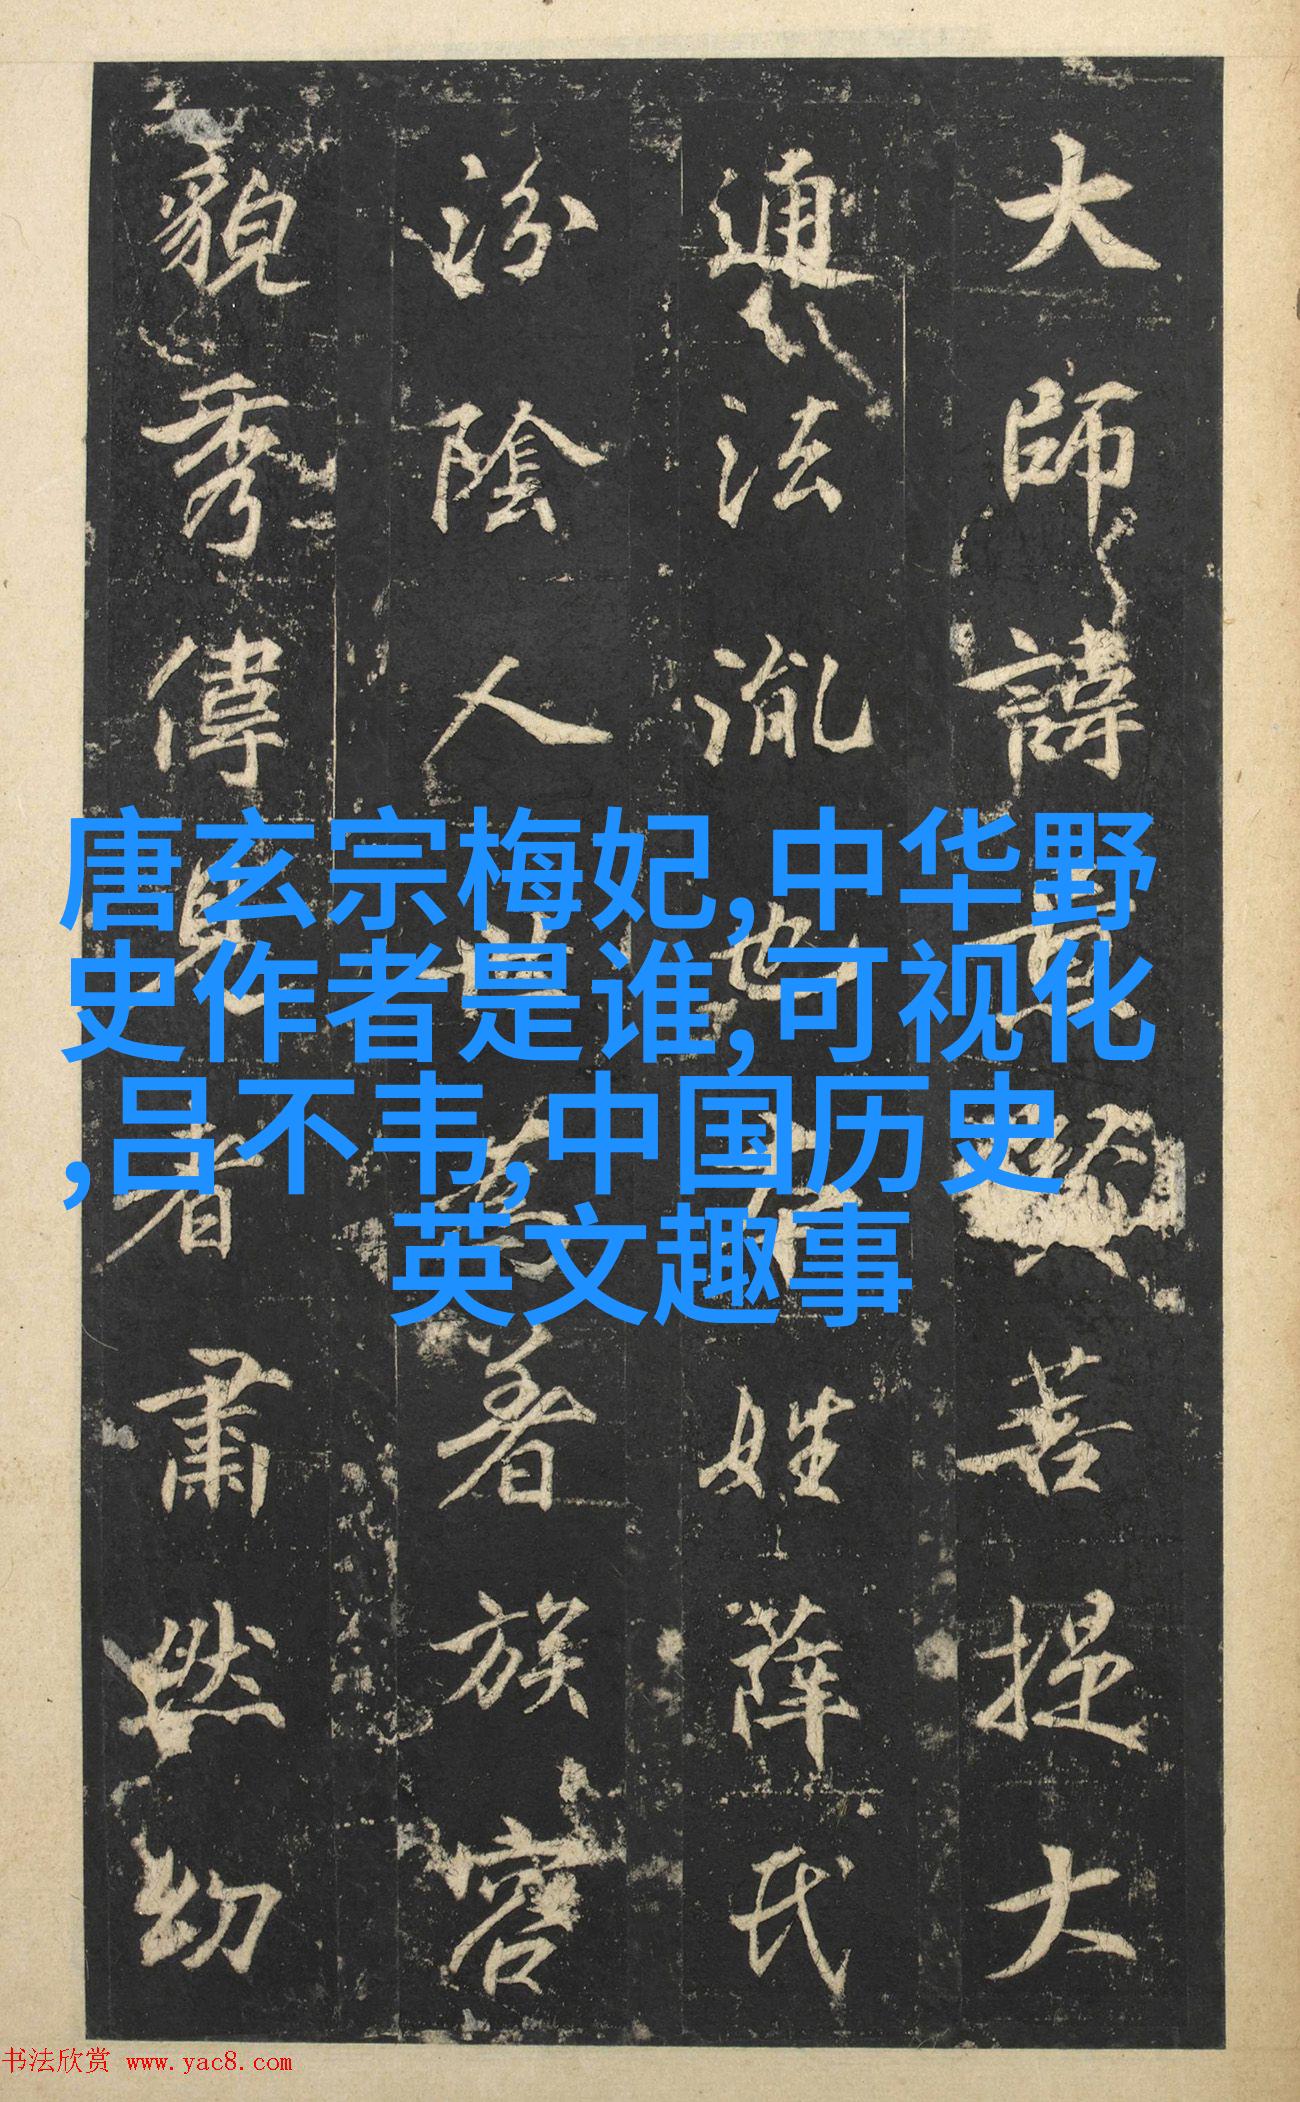 大師諱菩提大
通法也俗姓薛氏
汾陰人世著族容
貌秀偉見者肅然幼
唐玄宗梅妃,中华野
史作者是谁,可视化
,吕不韦,中国历史
英文趣事
书法欣赏 www.yac8.com